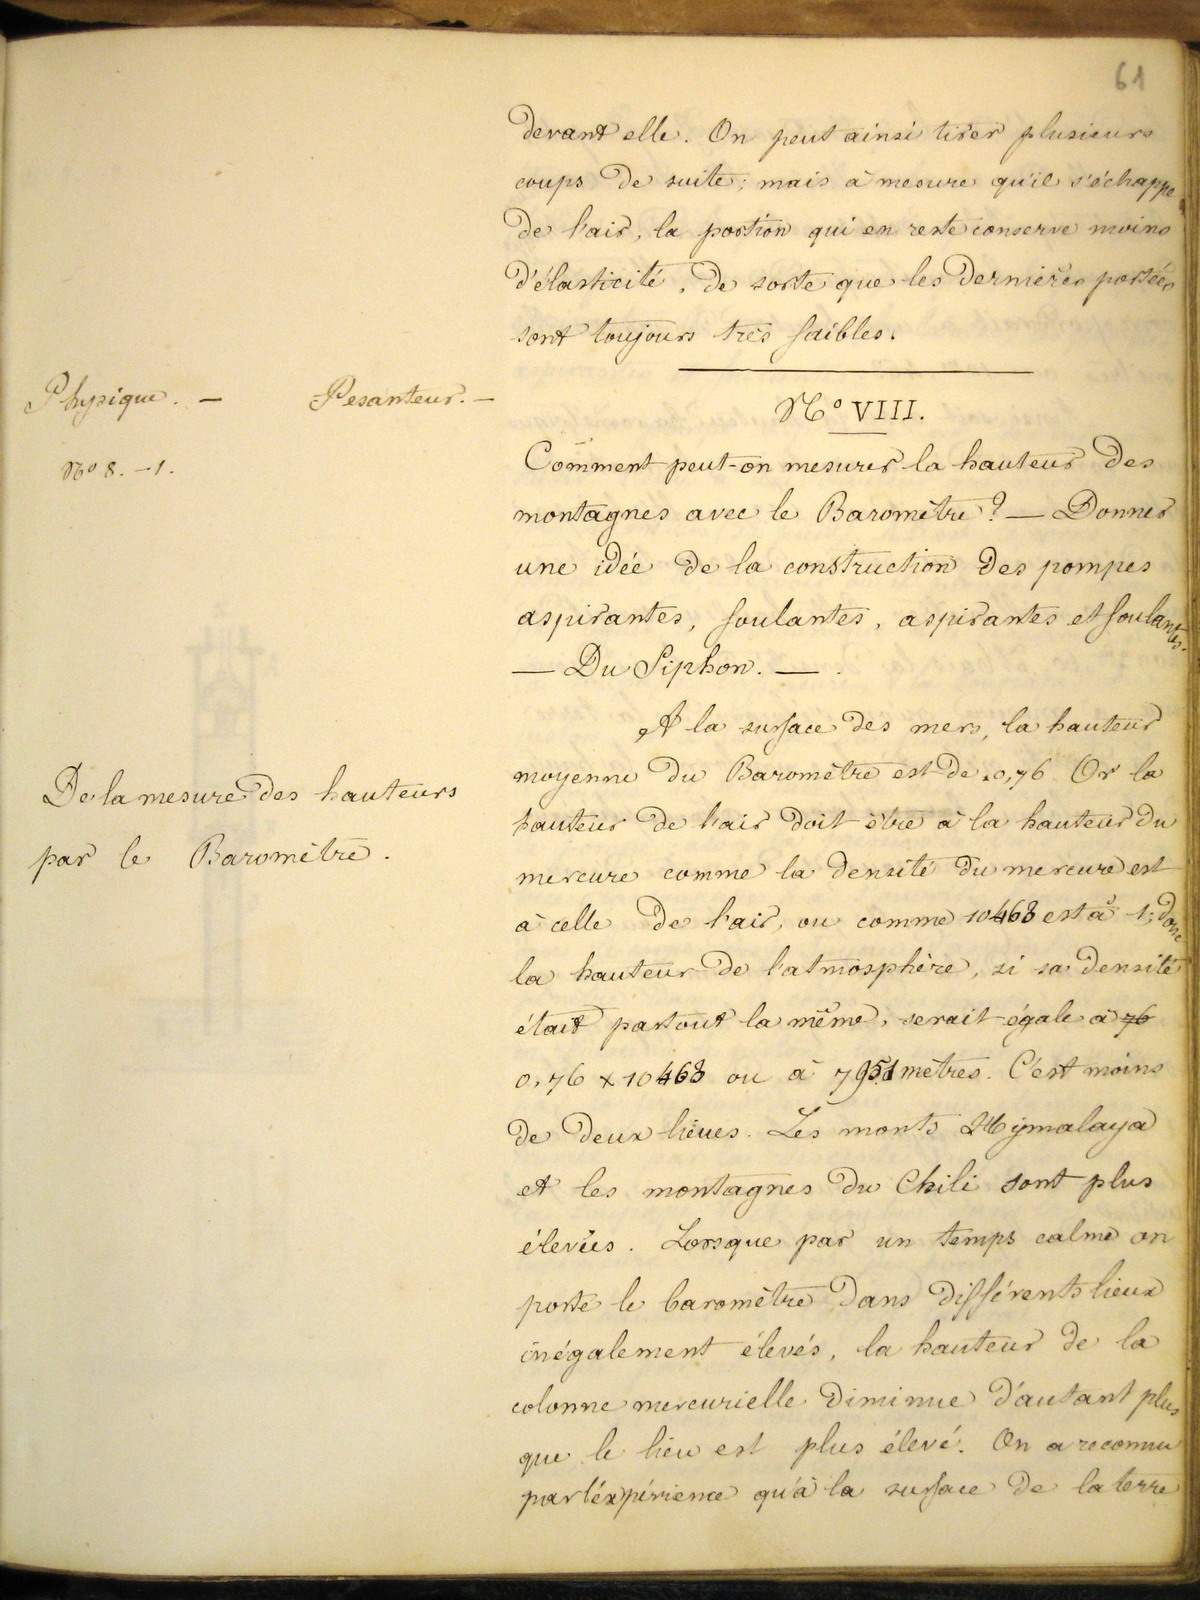 61
devant elle. On peut ainsi tirer plusieurs
coups de suite; mais à mesure qu'il s'échappe
de l'air, la portion qui en reste conserve moins
d'élasticité, de sorte que les dernières portées
sont toujours très faibles.
Physique. — Pesanteur. —
No 8. - 1.
No VIII.
Comment peut-on mesurer la hauteur des
montagnes avec le Baromètre? — Donner
une idée de la construction des pompes
aspirantes, foulantes, aspirantes et foulantes.
— Du Siphon. — .
De la mesure des hauteurs
par le Baromètre.
A la surface des mers, la hauteur
moyenne du Baromètre est de 0,76. Or la
hauteur de l'air doit être à la hauteur du
mercure comme la densité du mercure est
à celle de l'air, ou comme 10468 est à 1; donc
la hauteur de l'atmosphère, si sa densité
était partout la même, serait égale à 76
0,76 x 10468 ou à 7951 mètres. C'est moins
de deux lieues. Les monts Hymalaya
et les montagnes du Chili sont plus
élevées. Lorsque par un temps calme on
porte le baromètre dans différents lieux
inégalement élevés, la hauteur de la
colonne mercurielle diminue d'autant plus
que le lieu est plus élevé. On a reconnu
par l'éxpérience qu'à la surface de la terre